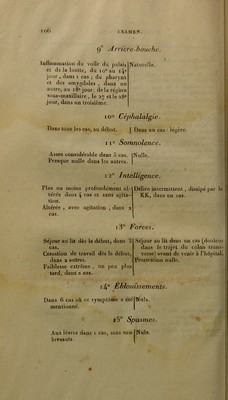 106 EXAMEN.
9° Arrière-bouche.
Inflammation du voile du palais
et de la luette, du 10e au 14e
jour, dans 1 cas; du pharynx
et des amygdales, dans un
autre, au 18e jour: de la région
sous-maxillaire, le 27 et le 28e
jour, dans un troisième.
Naturelle.
10° Céphalalgie.
Dans tous les cas, au début.
Dans un cas: légère.
11° Somnolence.
Assez considérable dans 5 cas.
Presque nulle dans les autres.
Nulle.
12° Intelligence.
Plus ou moins profondément al-
térée dans 4 cas et sans agita-
tion.
Altérée, avec agitation, dans 2
cas.
Délire intermittent, dissipé par le
KK, dans un cas.
13° Forces.
Séjour au lit dès le début, dans 3
cas.
Cessation de travail dès le début,
dans 2 autres.
Faiblesse extrême, un peu plus
tard, dans 2 cas.
Séjour au lit dans un cas (douleurs
dans le trajet du colon trans-
verse) avant de venir à l'hôpital.
Prostration nulle.
14° Éblouissements.
Dans 6 cas où ce symptôme a été
mentionné.
Nuls.
15° Spasmes.
Aux lèvres dans 1 cas, sans sou-
bresauts.
Nuls.